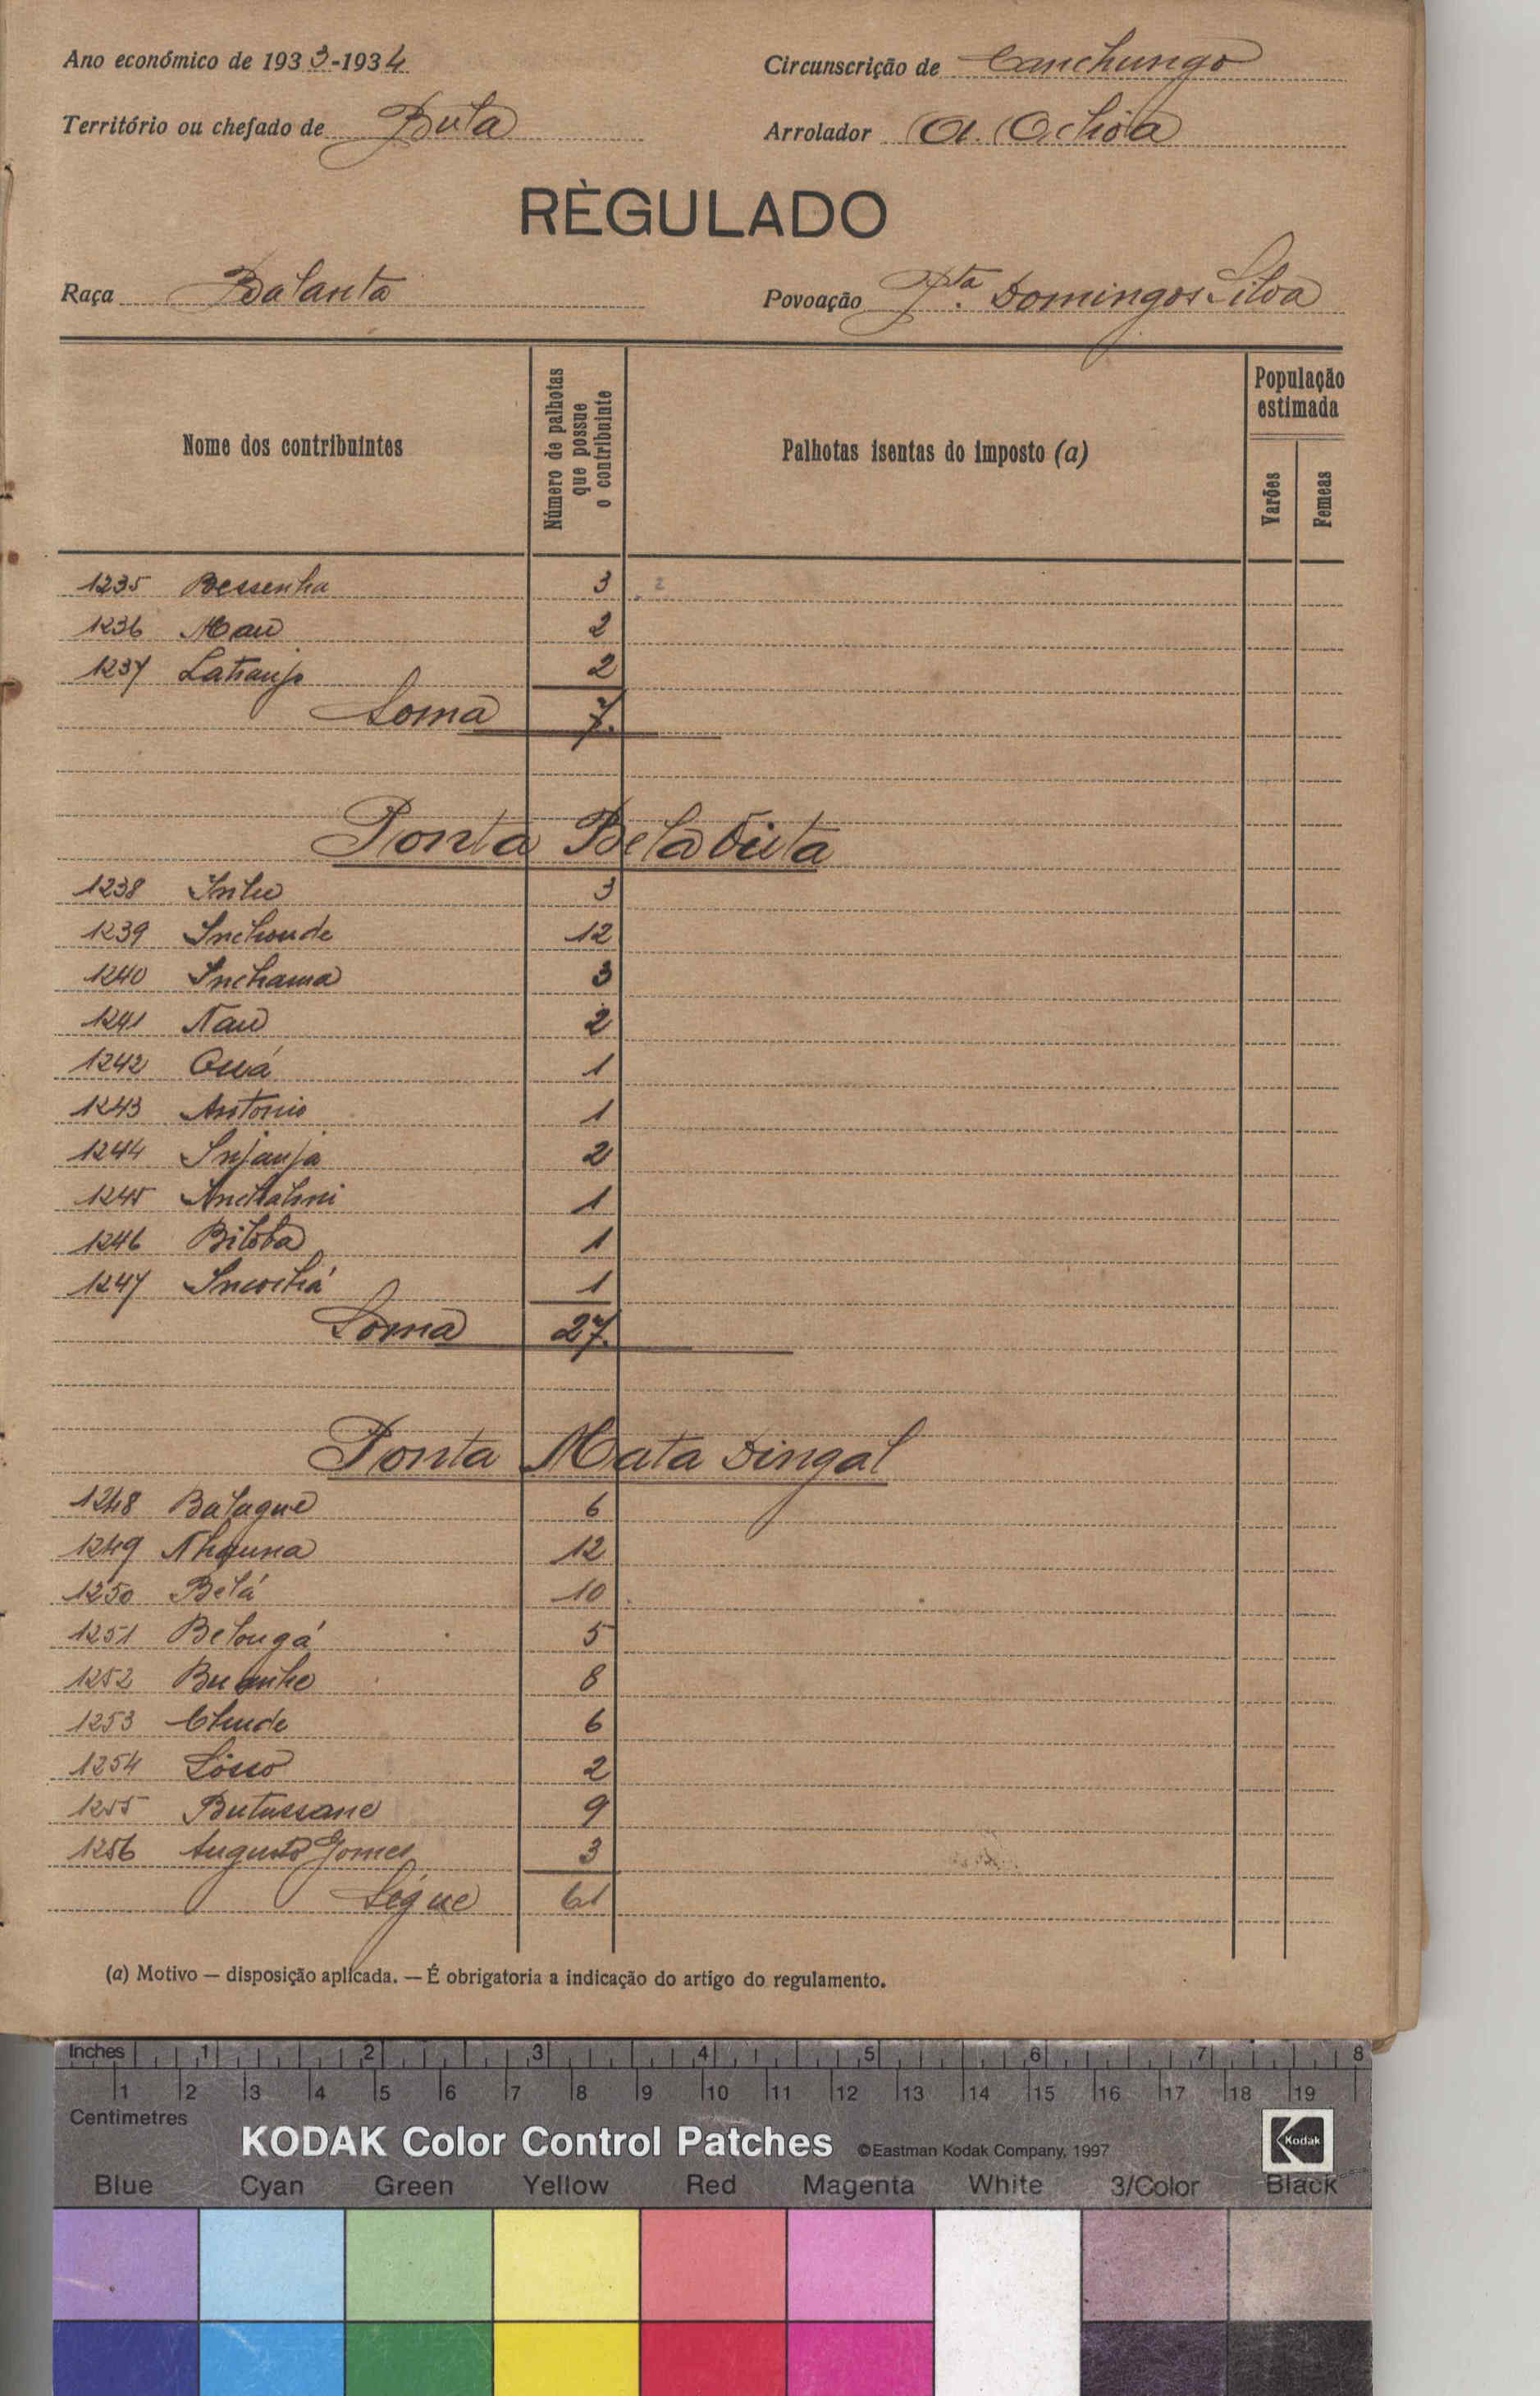 Ano económico de 1933-1934
Circunscrição de Canchungo
Território ou chefado de Bula
Arrolador A. Ochôa
RÈGULADO
Raça Balanta
Povoação Pta. Domingos Silva
Nome dos contribuintes
Número de palhotas que possue o contribuinte
Palhotas isentas do imposto (a)
População estimada
Varões
Femeas
1235 Bessenha 3 2
1236 Mau 2
1237 2
Soma 7.
Ponta Bela Vista
1238 3
1239 Inchonde 12
1240 Inchama 3
1241 Nau 2
1242 1
1243 Antonio 1
1244 Injanja 2
1245 1
1246 Bitoba 1
1247 1
Soma 27.
Ponta Mata Dingal
1248 Batague 6
1249 Nhauna 12
1250 Belá 10
1251 Belongá 5
1252 8
1253 6
1254 Sósso 2
1255 Butussane 9
1256 Augusto Gomes 3
Ségue 61
(a) Motivo — disposição aplicada. — É obrigatoria a indicação do artigo do regulamento.
Inches 1 2 3 4 5 6 7 8
1 2 3 4 5 6 7 8 9 10 11 12 13 14 15 16 17 18 19
Centimetres
KODAK Color Control Patches ©Eastman Kodak Company, 1997 Kodak
Blue Cyan Green Yellow Red Magenta White 3/Color Black